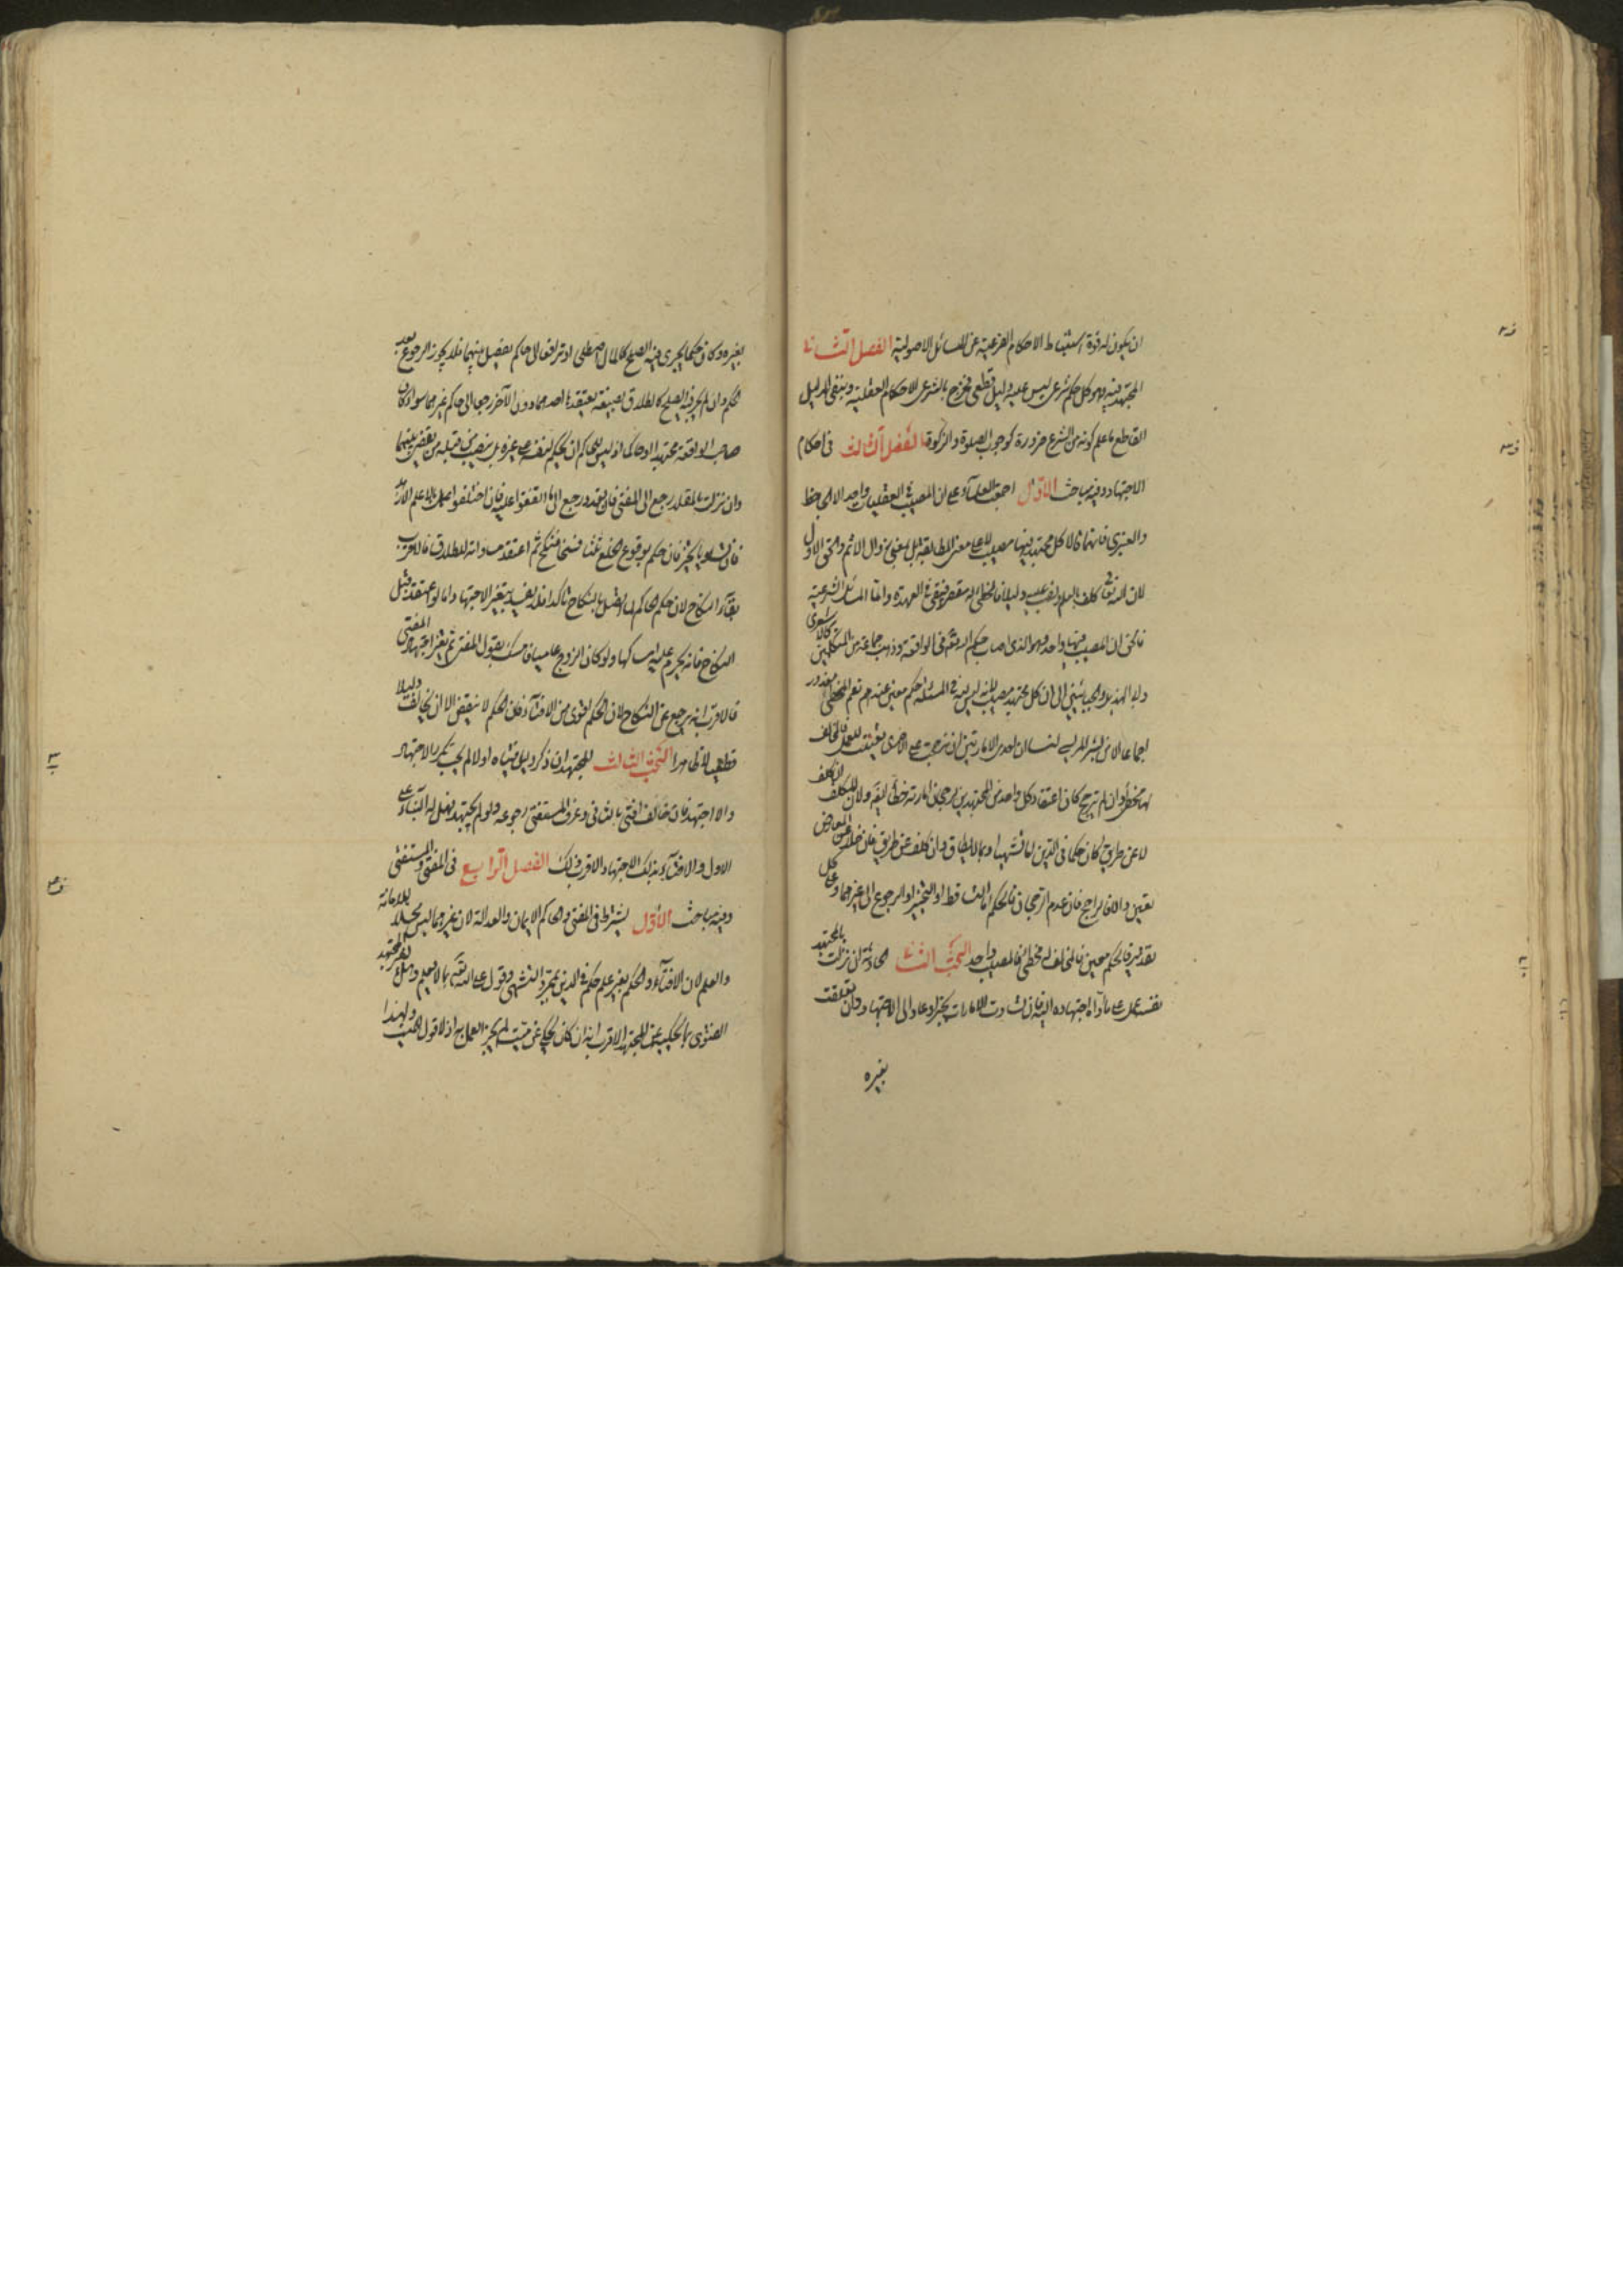 ان يكون له قوة استنباط الاحكام الفرعية عن المسائل الاصولية الفصل الثاني
المجتهد فيه وهو كل حكم شرعي ليس عليه دليل قطعي فخرج بالشرعي الاحكام العقلية وبنفي الدليل
القاطع ما علم كونه من الشرع ضرورة كوجوب الصلوة والزكوة الفصل الثالث في احكام
الاجتهاد وفيه مباحث الاول اجمع العلماء على ان المصيب في العقليات واحد الا الجاحظ
والعنبري فانهما قالا كل مجتهد فيها مصيب لا على معنى المطابقة بل بمعنى زوال الاثم والحق الاول
لان الله تعالى كلف بالعلم ونصب عليه دليلا فالمخطئ له مقصر فيبقى في العهدة واما المسائل الشرعية
فالحق ان المصيب فيها واحد وهو الذي اصاب حكم الله تعالى في الواقعة وذهب جماعة من المتكلمين كالاشعري
و الهذيل والجبائيين الى ان كل مجتهد مصيب لانه ليس لله في المسئلة حكم معين عندهم نعم المخطئ معذور
اجماعا الا من بشر المريسي لنا ان احدى الامارتين ان ترجحت على الاخرى تعينت للعمل فالمخالف
لها مخطئ وان لم ترجح كان اعتقاد كل واحد من المجتهدين لرجحان امارته خطأ ولان المكلف ان كلف
لا عن طريق كان حكما في الدين اما تشهيا او بما لا يطاق وان كلف عن طريق فان خلا عن المعارض
تعين والا فالراجح فان عدم الرجحان فالحكم اما التساقط او التخيير او الرجوع الى غيرهما وعلى كل
تقدير فالحكم معين فالمخالف له مخطئ فالمصيب واحد البحث الثاني الحادثة ان نزلت بالمجتهد
نفسه عمل على ما اداه اجتهاده اليه فان تساوت الامارات تخير او عاود الى الاجتهاد وان تعلقت
بغيره
بغيره وكان حكما يجري فيه الصلح كالمال اصطلحا او ترافعا الى حاكم يفصل بينهما فلا يجوز الرجوع بعد
الحكم وان لم يجر فيه الصلح كالطلاق بصيغة يعتقدها احدهما دون الآخر رجعا الى حاكم غيرهما سواء كان
صاحب الواقعة مجتهدا او حاكما اذ ليس للحاكم ان يحكم لنفسه على غيره بل ينصب من قبله من يقضي بينهما
وان نزلت بالمقلد رجع الى المفتي فان تعدد رجع الى ما اتفقوا عليه فان اختلفوا عمل بالاعلم الازهد
فان تساويا تخير فان حكم بوقوع الخلع ثلثا فسخا فنكح ثم اعتقد مساواته للطلاق فالاقرب
بقاء النكاح لان حكم الحاكم لما اتصل بالنكاح تاكد فلا يفسد بتغير الاجتهاد واما لو اعتقد قبل
النكاح فانه يحرم عليه امساكها ولو كان الزوج عاميا فامسك بقول المفتي ثم تغير اجتهاد المفتي
فالاقرب انه يرجع عن النكاح لان الحكم اقوى من الافتاء فان الحكم لا ينقض الا ان يخالف دليلا
قطعيا لا ظاهرا البحث الثالث المجتهد ان ذكر دليل فتياه اولا لم يجب تكرر الاجتهاد
والا اجتهد فان خالف افتى بالثاني وعرف المستفتي رجوعه ولو لم يجتهد فهل له البناء على
الاول والافتاء بذلك الاجتهاد الاقرب ذلك الفصل الرابع في المفتي والمستفتي
وفيه مباحث الاول يشترط في المفتي والحاكم الايمان والعدالة لان غيرهما ليس محلا للامانة
والعلم لان الافتاء والحكم بغير علم حكم في الدين بمجرد التشهي وقول على الله بما لا يعلم وهل لغير المجتهد
الفتوى بما يحكيه عن المجتهد الاقرب انه ان كان يحكي عن ميت لم يجز العمل به اذ لا قول للميت ولهذا